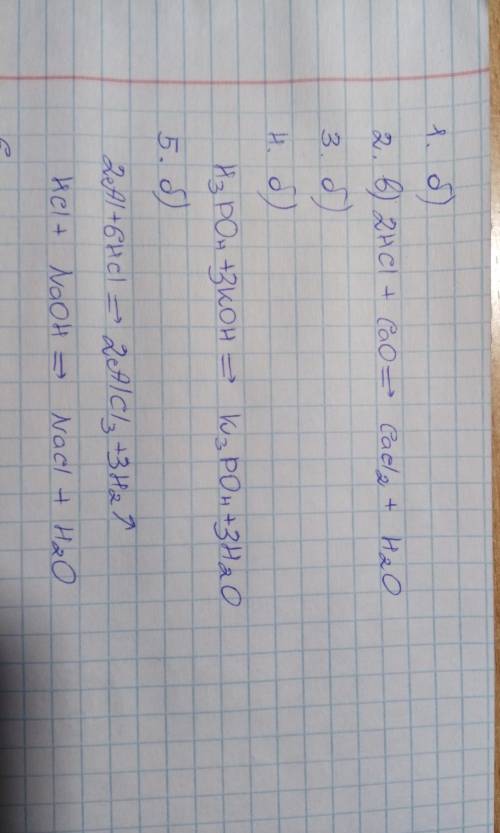 1. б)
2. в) 2HCl + CaO => CaCl2 + H2O
3. б)
4. б)
H3PO4 + 3KOH => K3PO4 + 3H2O
5. б)
2Al + 6HCl => 2AlCl3 + 3H2↑
HCl + NaOH => NaCl + H2O